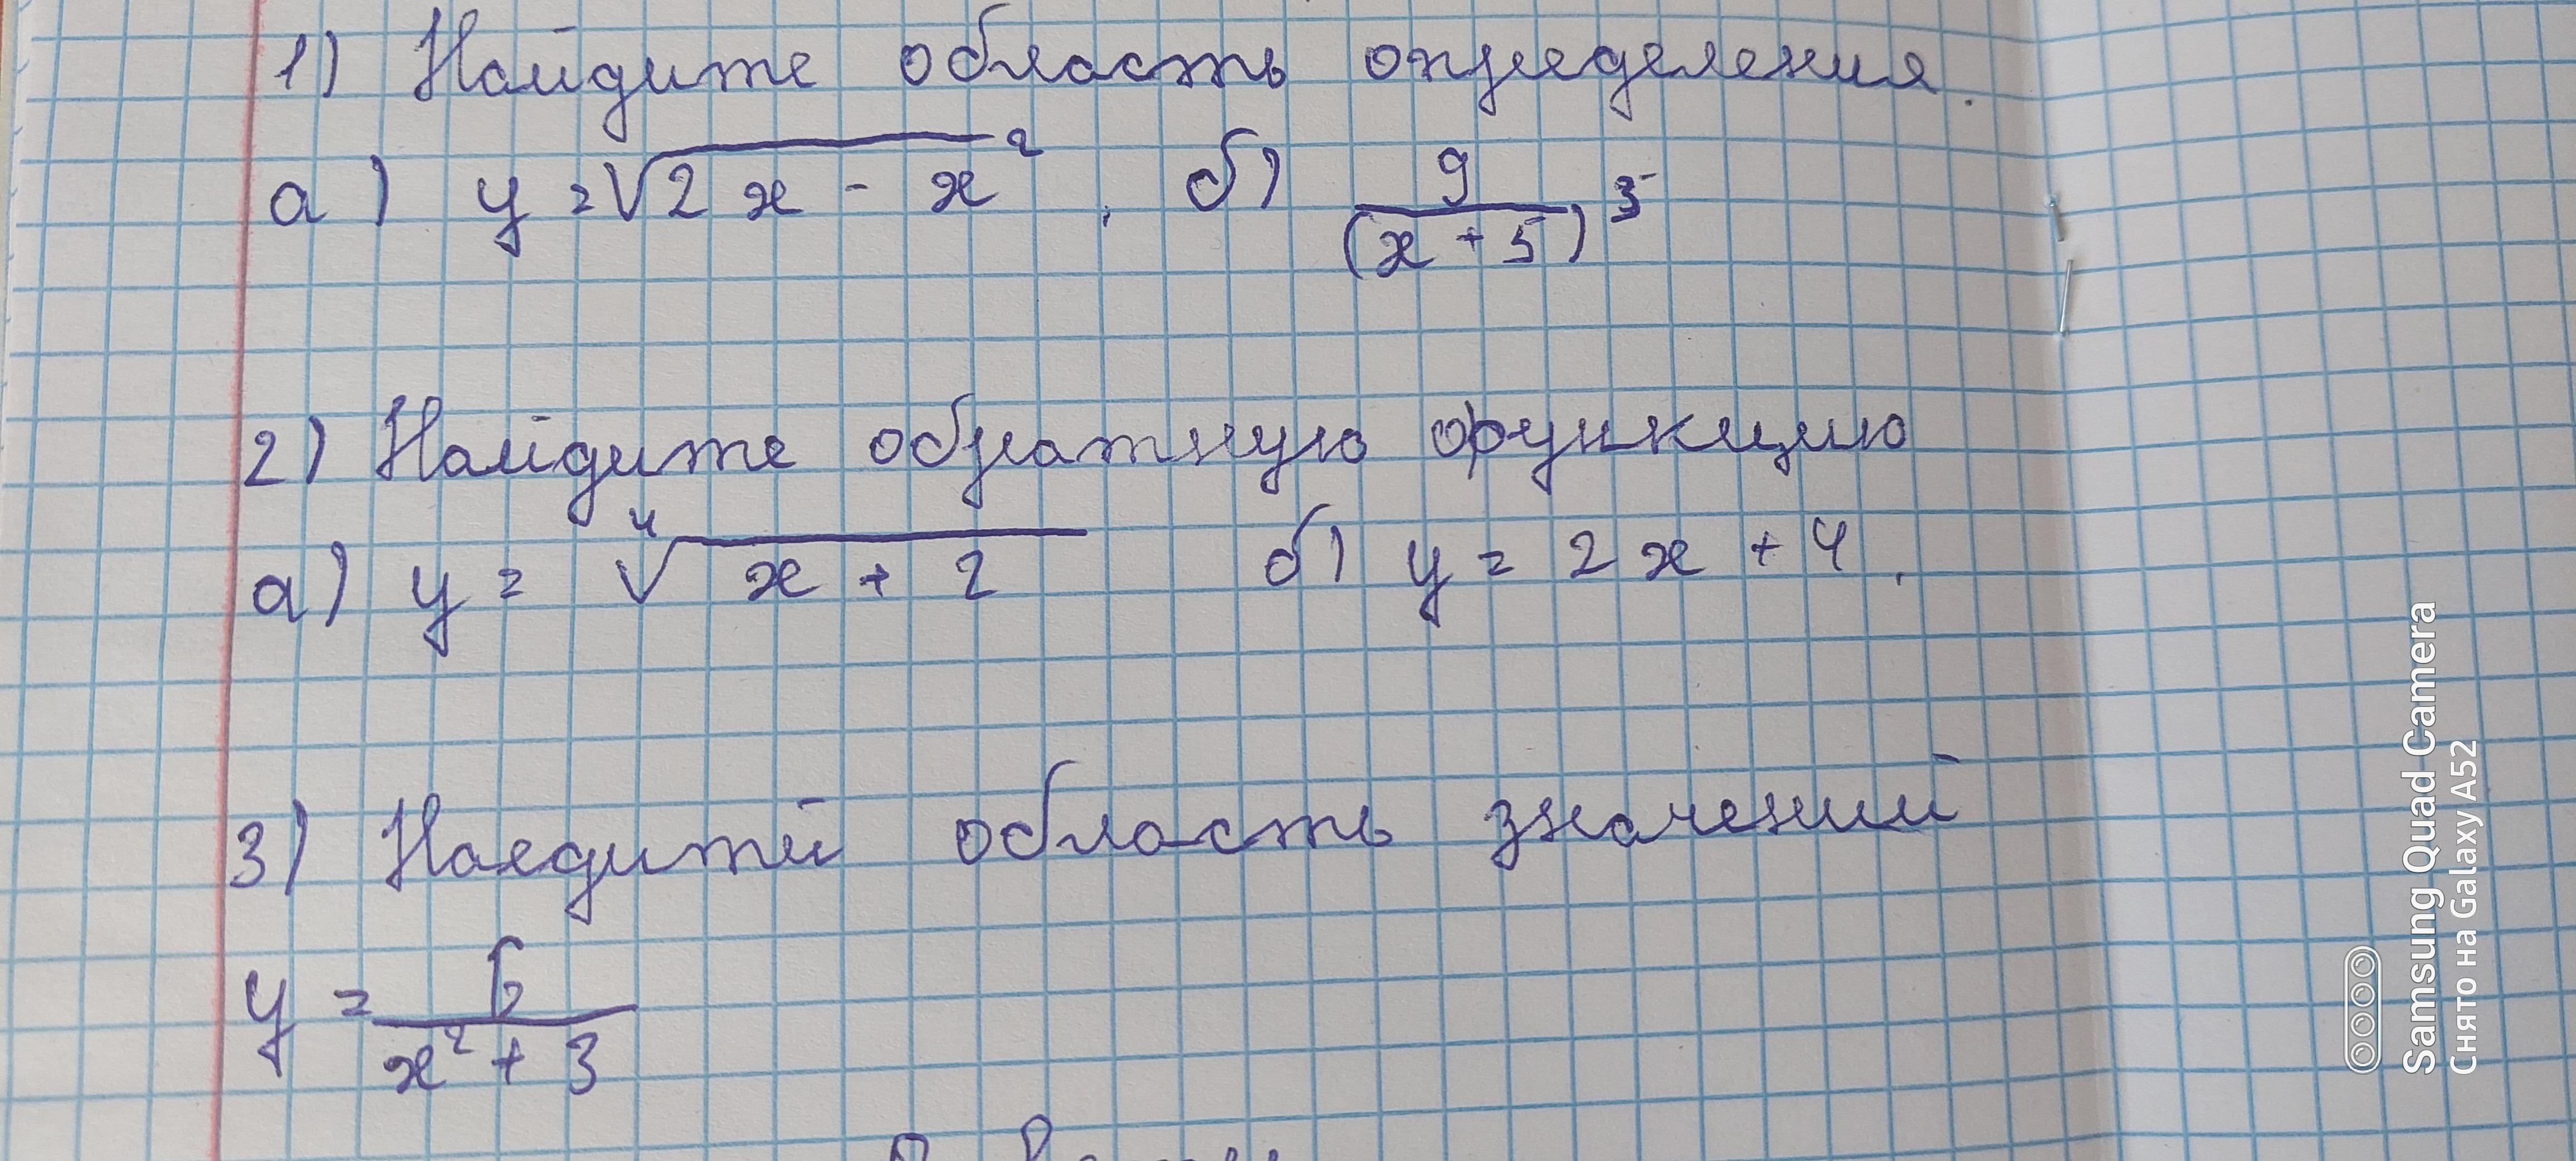 1) Найдите область определения.
а) y = √2x - x², б) 9/(x + 5)³
2) Найдите обратную функцию
а) y = ⁴√x + 2 б) y = 2x + 4.
3) Наедитей область значений
y = 6/x² + 3
Samsung Quad Camera
Снято на Galaxy A52